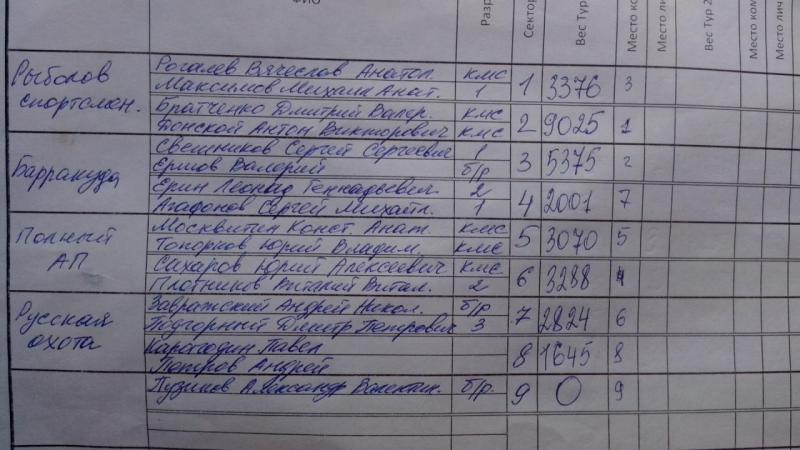 ФИО Разр Сектор Вес Тур Место ко Место ли Вес Тур 2 Место ком Место лич
Рыболов спортсмен.
Рогалев Вячеслав Анатол. кмс 1 3376 3
Максимов Михаил Анат. 1
Братченко Дмитрий Валер. кмс 2 9025 1
Донской Антон Викторович кмс
Барракуда
Свешников Сергей Сергеевич 1 3 5375 2
Ершов Валерий б/р
Ерин Леонид Геннадьевич 2 4 2001 7
Агафонов Сергей Михайл. 1
Полный АП
Москвитин Конст. Анат. кмс 5 3070 5
Топорков Юрий Владим. кмс
Сахаров Юрий Алексеевич кмс 6 3288 4
Плотников Виталий Витал. 2
Русская охота
Завражский Андрей Никол. б/р 7 2824 6
Подгорный Дмитр Петрович 3
Карагодин Павел 8 1645 8
Петров Андрей
Пузиков Александр Валентин. б/р 9 0 9